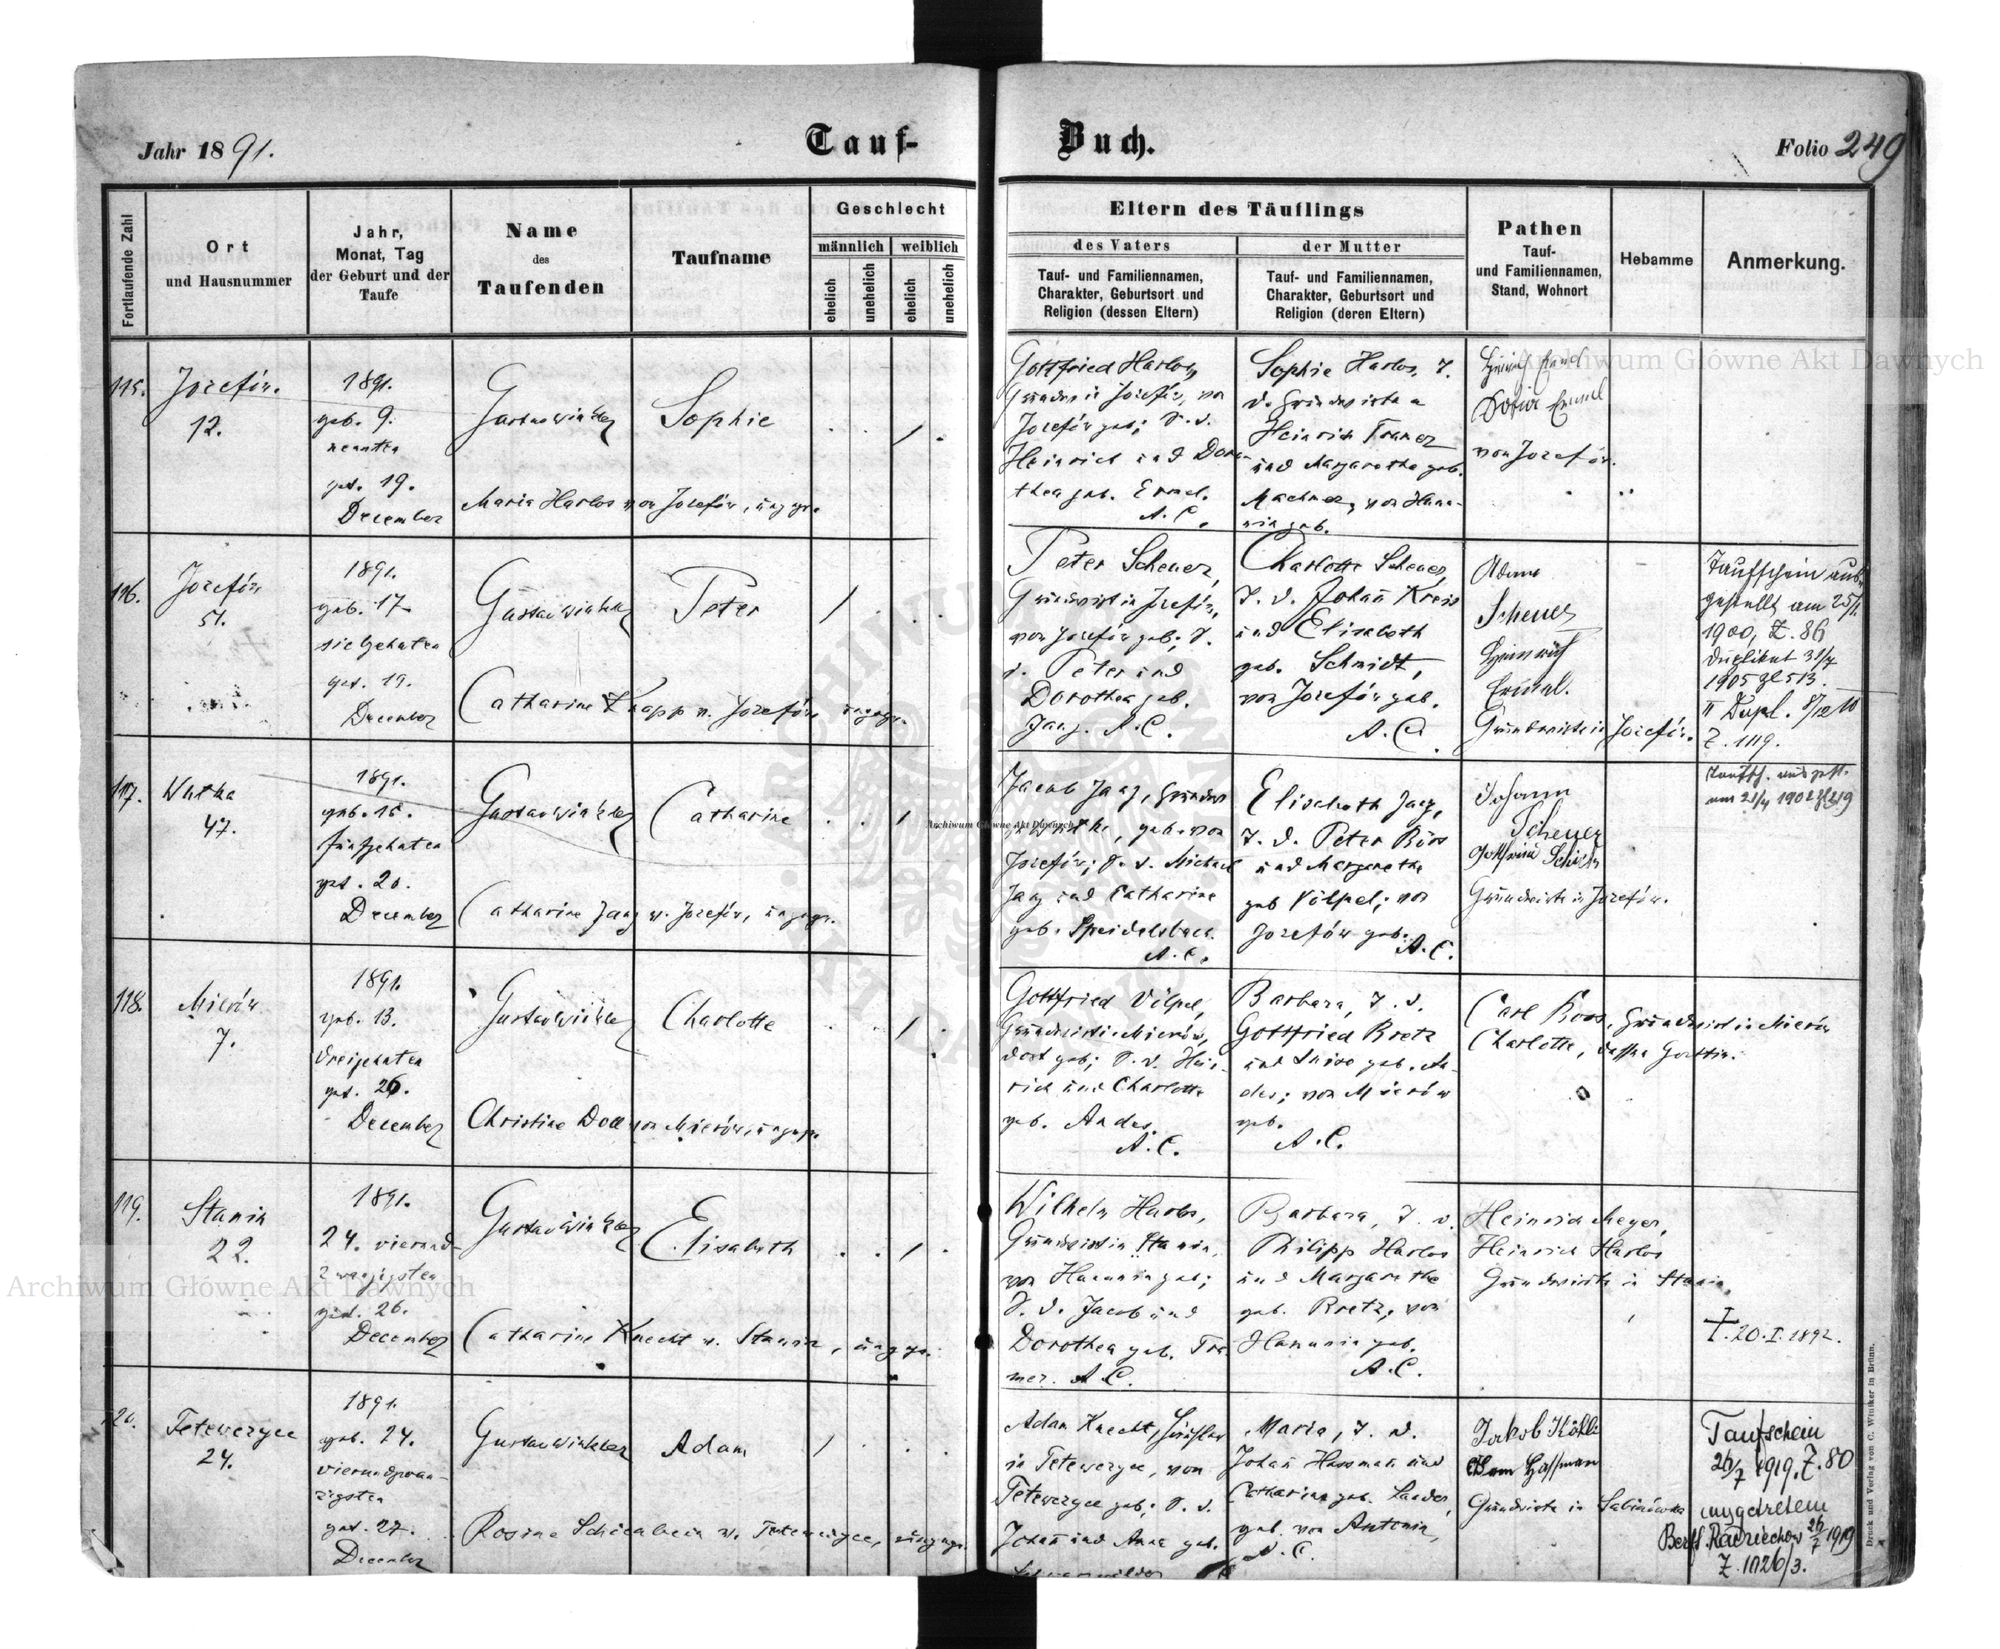 Jahr 1891.
Tauf-
Buch.
Folio 249
Fortlaufende Zahl
Ort
und Hausnummer
Jahr,
Monat, Tag
der Geburt und der
Taufe
Name
des
Taufenden
Taufname
Geschlecht
männlich
weiblich
ehelich
unehelich
ehelich
unehelich
Eltern des Täuflings
des Vaters
der Mutter
Tauf- und Familiennamen,
Charakter, Geburtsort und
Religion (dessen Eltern)
Tauf- und Familiennamen,
Charakter, Geburtsort und
Religion (deren Eltern)
Pathen
Tauf-
und Familiennamen,
Stand, Wohnort
Hebamme
Anmerkung.
115.
Jozefów.
12.
1891.
geb. 9.
neunten
get. 19.
December
Gustav Winkler
Sophie
Maria Harlos von Jozefów, ungepr.
Gottfried Harlos,
Jozefów geb; S. d.
Heinrich und Doro-
thea geb. Ermel.
A. C.
Sophie Harlos, T.
d. Grundwirthe
Heinrich Tramer
und Margarethe geb.
von Hanu-
nin geb.
von Jozefów.
116.
Jozefów
51.
1891.
geb. 17.
siebzehnten
get. 19.
December
Gustav Winkler
Peter
Catharine Knapp v. Jozefów ungepr.
Peter Scheuer,
Grundwirt in Jozefów,
von Jozefów geb; S.
d. Peter und
Dorothea geb.
Jang. A. C.
Charlotte Scheuer,
T. d. Johann Kreis
und Elisabeth
geb. Schmidt,
von Jozefów geb.
A. C.
Adam
Scheuer
Heinrich
Ermel.
Grundwirthe in Jozefów.
Taufschein aus-
gestellt am 25/1.
1900, Z. 86
Duplikat 31/7
1905 Zl 513.
II Dupl. 8/12 10
Z. 1119.
117.
Wulka
47.
1891.
geb. 15.
fünfzehnten
get. 20.
December
Gustav Winkler
Catharine
Catharine Jang v. Jozefów, ungepr.
Jacob Jang,
geb. von
Jozefów; S. d. Michael
Jang und Catharine
geb. Speidelsbach.
A. C.
Elisabeth Jang,
T. d. Peter Röos
und Margarethe
geb Völpel; von
Jozefów geb.
A. C.
Johann
Scheuer
Gottfried
Grundwirthe in Jozefów.
Taufsch. ausgest.
am 21/4 1902
118.
Mierów
7.
1891.
geb. 13.
dreizehnten
get. 26.
December
Gustav Winkler
Charlotte
Christine Doll von Mierów, ungepr.
Gottfried Völpel,
Grundwirt in Mierów,
dort geb; S. d. Hein-
rich und Charlotte
geb. Andes.
A. C.
Barbara, T. d.
Gottfried Bretz
und Luise geb. An-
des; von Mierów
geb.
A. C.
Carl Roos, Grundwirt in Mierów
Charlotte, dessen Gattin.
119.
Stanin
22.
1891.
24. vierund-
zwanzigsten
get. 26.
December
Gustav Winkler
Elisabeth
Catharine Knecht v. Stanin, ungepr.
Wilhelm Harlos,
Grundwirt in Stanin,
von Hanunin geb;
S. d. Jacob und
Dorothea geb. Tra-
mer. A. C.
Barbara, T. d.
Philipp Harlos
und Margarethe
geb. Bretz, von
Hanunin geb.
A. C.
Heinrich Meyer,
Heinrich Harlos
Grundwirthe in Stanin.
†. 20. I. 1892.
120.
Tetewczyce
24.
1891.
geb. 24.
vierundzwan-
zigsten
get. 27.
December
Gustav Winkler
Adam
Rosine Schienbein v. Tetewczyce, ungepr.
Adam Knecht, Häusler
in Tetewczyce, von
Tetewczyce geb; S. d.
Johann und Anna geb.
Maria, T. d.
Johann Hassmann und
Catharine geb. Lander,
geb. von Antonin,
A. C.
Jakob Köhler
Adam Hassmann
Grundwirthe in Sabinówka
Taufschein
26/7 1919. Z. 80
Radziechow 26/7 1919
Z. 1126/3.
Druck und Verlag von C. Winiker in Brünn.
Archiwum Główne Akt Dawnych
Archiwum Główne Akt Dawnych
Archiwum Główne Akt Dawnych